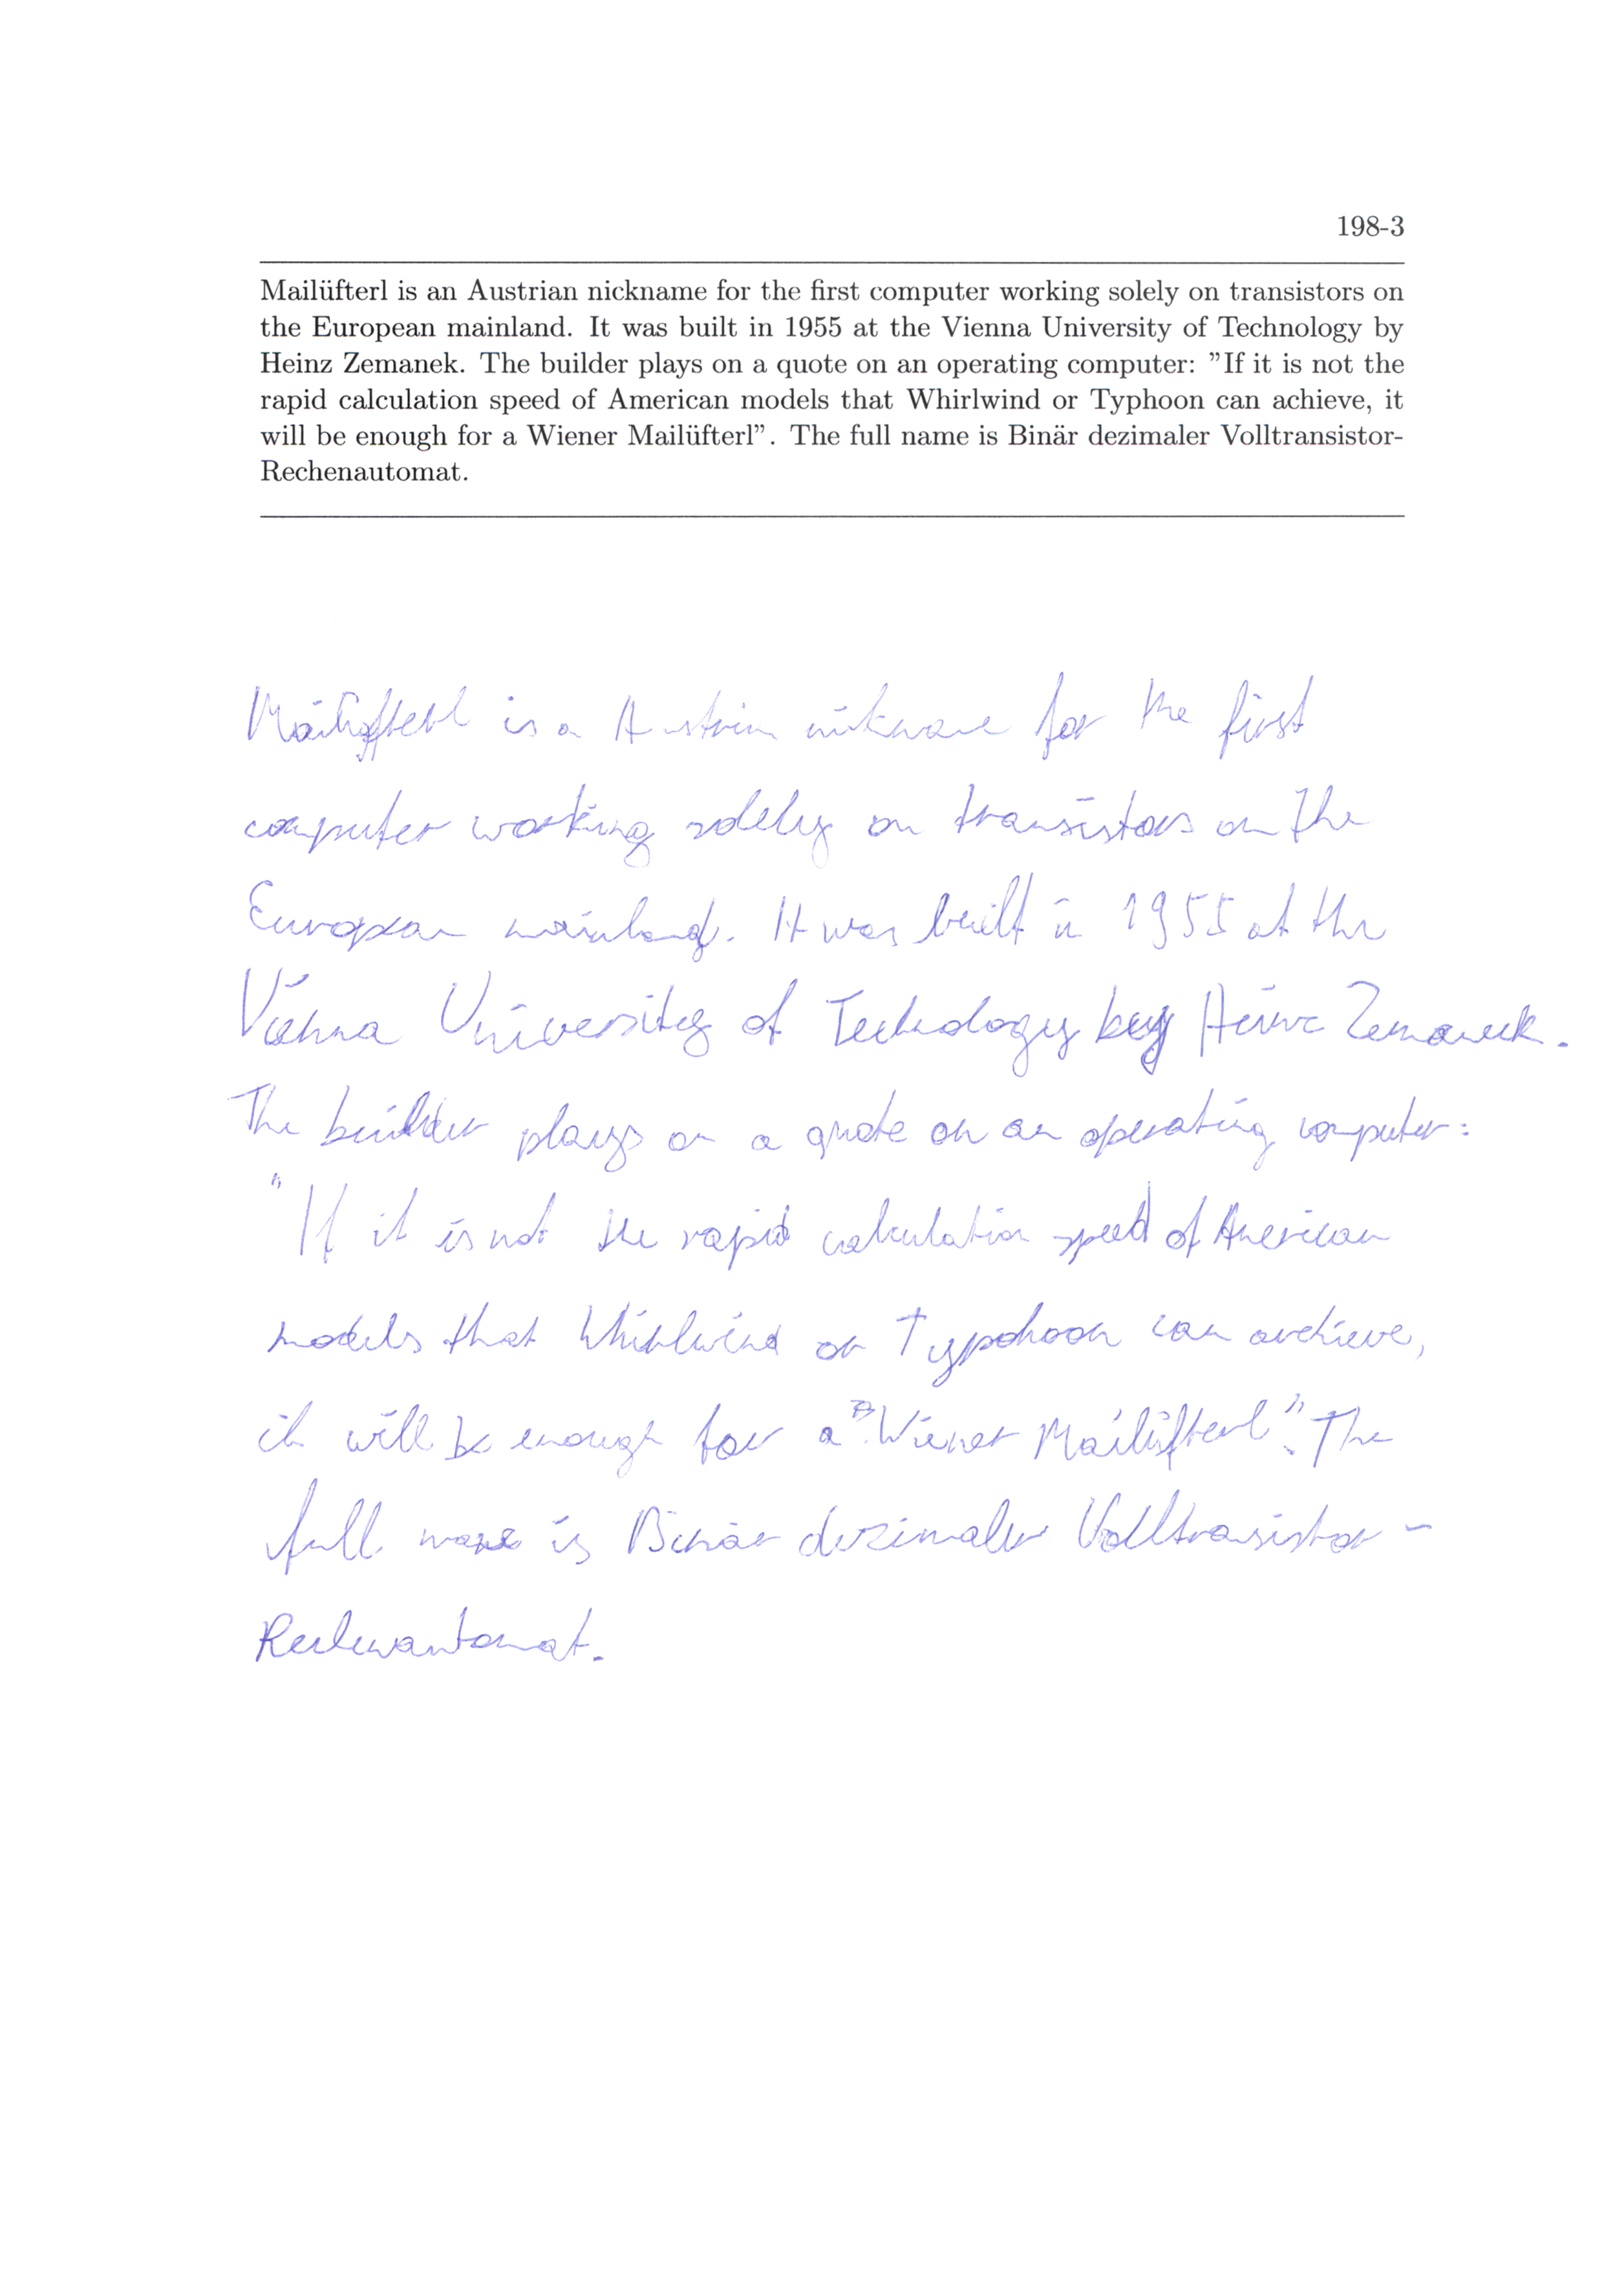 198-3
Mailüfterl is an Austrian nickname for the first computer working solely on transistors on
the European mainland. It was built in 1955 at the Vienna University of Technology by
Heinz Zemanek. The builder plays on a quote on an operating computer: ”If it is not the
rapid calculation speed of American models that Whirlwind or Typhoon can achieve, it
will be enough for a Wiener Mailüfterl”. The full name is Binär dezimaler Volltransistor-
Rechenautomat.
Mailüfterl is a Austrian nickname for the first
computer working solely on transistors on the
European mainland. It was built in 1955 at the
Vienna University of Technology by Heinz Zemanek.
The builder plays on a quote on an operating computer:
"If it is not the rapid calculation speed of American
models that Whirlwind or Typohoon can archieve,
it will be enough for a "Wiener Mailüfterl". The
full name is Binär dezimaler Volltransistor-
Rechenautomat.